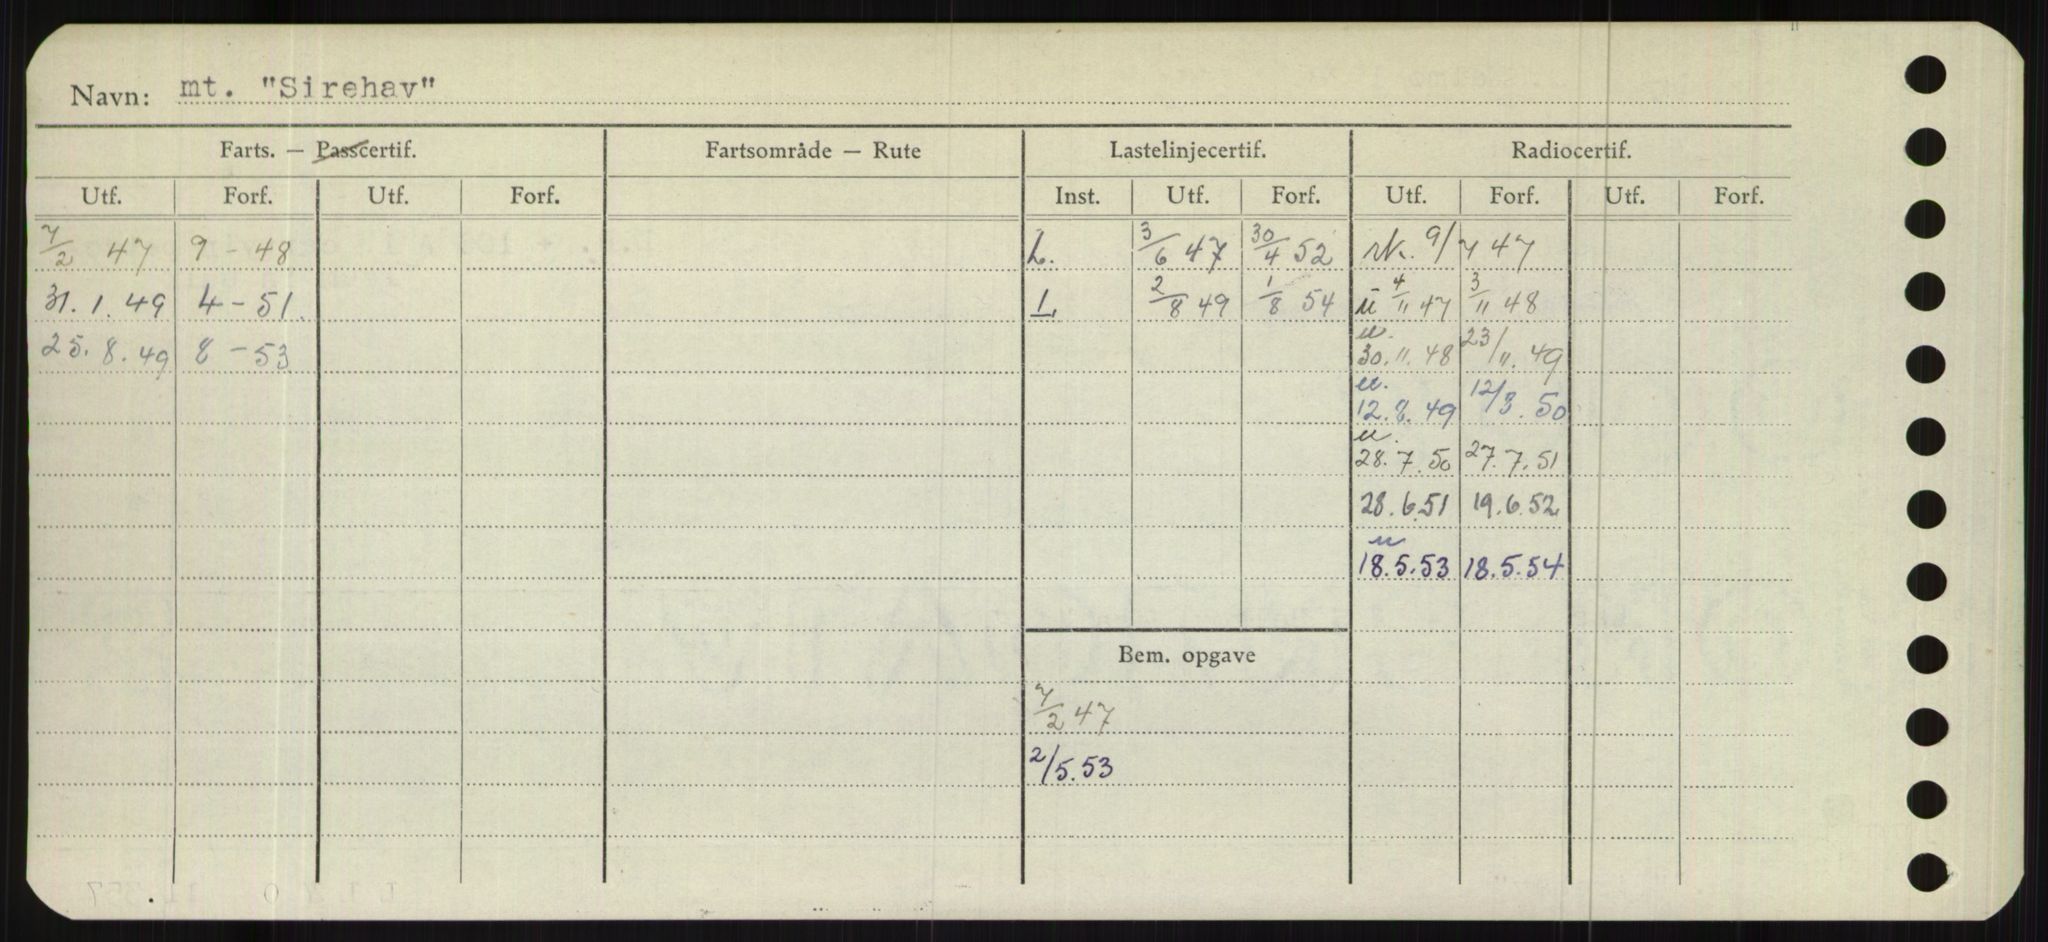 Navn: mt. "Sirehav"
Farts. — Passcertif. Fartsområde — Rute Lastelinjecertif. Radiocertif.
Utf. Forf. Utf. Forf. Inst. Utf. Forf. Utf. Forf. Utf. Forf.
7/2 47 9 - 48 L. 3/6 47 30/4 52 rk. 9/7 47
31.1.49 4 - 51. L 2/8 49 1/8 54 u 4/11 47 3/11 48
25.8.49 8 - 53 u. 30.11.48 23/11.49
u. 12.8.49 12/8.50
u. 28.7.50 27.7.51
28.6.51 19.6.52
u 18.5.53 18.5.54
Bem. opgave
7/2 47
2/5.53